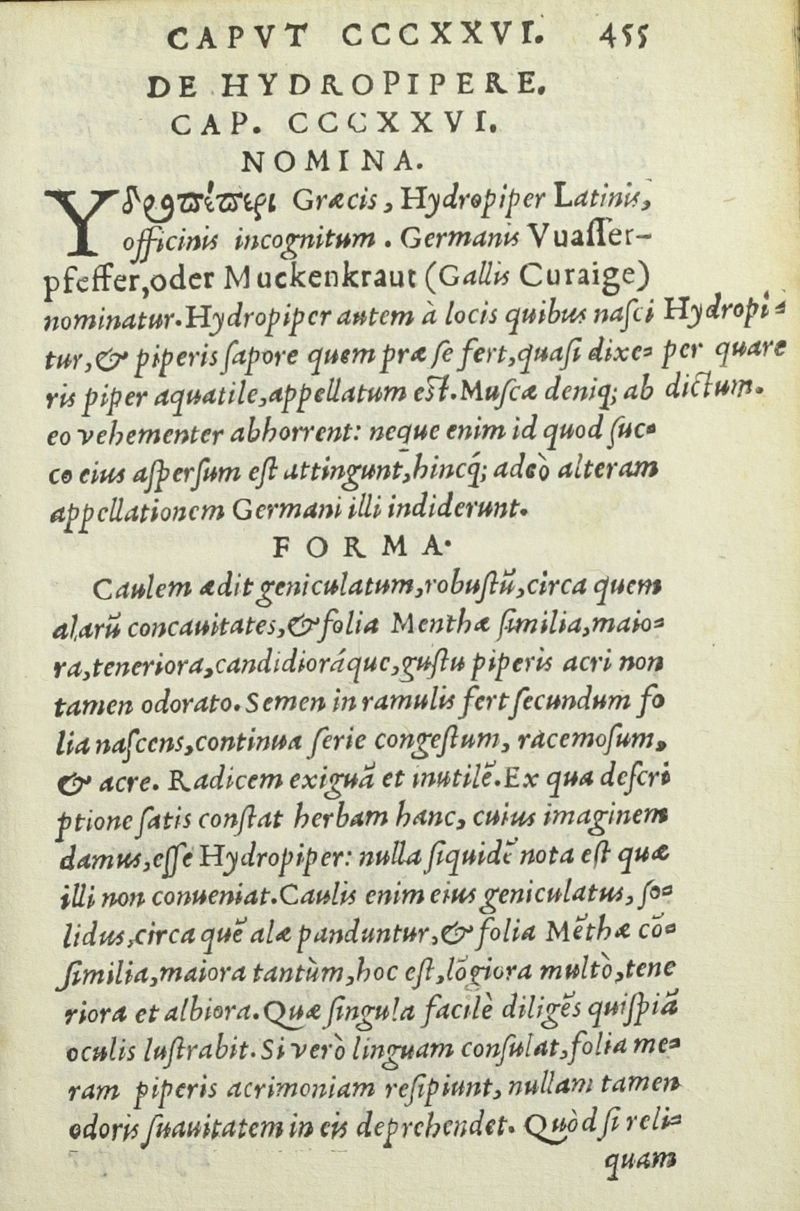 CAPVT CCCXXVI. 455
DE HYDROPIPERE.
CAP. CCCXXVI.
NOMINA.
Yδροπίπερι Græcis, Hydropiper Latinis,
officinis incognitum. Germanis Vuaſſer-
pfeffer, oder Muckenkraut (Gallis Curaige)
nominatur. Hydropiper autem à locis quibus naſci
tur, & piperis ſapore quem præ ſe fert, quaſi dixe-
ris piper aquatile, appellatum eſt. Muſcæ deniq; ab
eo vehementer abhorrent: neque enim id quod ſuc-
co eius aſperſum eſt attingunt, hincq́; adeò alteram
appellationem Germani illi indiderunt.
Hydropi-
per quare
dictum.
FORMA.
Caulem ædit geniculatum, robuſtũ, circa quem
alarũ concauitates, & folia Menthæ ſimilia, maio-
ra, teneriora, candidioráque, guſtu piperis acri non
tamen odorato. Semen in ramulis fert ſecundum fo
lia naſcens, continua ſerie congeſtum, racemoſum,
& acre. Radicem exiguã et inutilẽ. Ex qua deſcri
ptione ſatis conſtat herbam hanc, cuius imaginem
damus, eſſe Hydropiper: nulla ſiquidẽ nota eſt quæ
illi non conueniat. Caulis enim eius geniculatus, ſo-
lidus, circa quẽ alæ panduntur, & folia Mẽthæ cõ-
ſimilia, maiora tantùm, hoc eſt, lõgiora multò, tene
riora et albiora. Quæ ſingula facilè diligẽs quiſpiã
oculis luſtrabit. Si verò linguam conſulat, folia me-
ram piperis acrimoniam reſipiunt, nullam tamen
odoris ſuauitatem in eis deprehendet. Quòd ſi reli-
quam